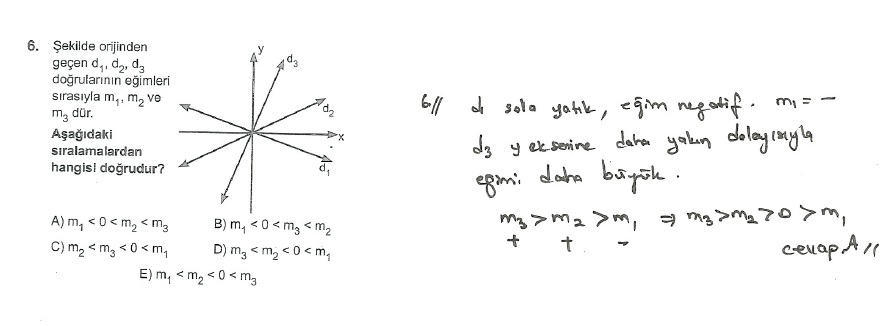 6. Şekilde orijinden
geçen d₁, d₂, d₃
doğrularının eğimleri
sırasıyla m₁, m₂ ve
m₃ dür.
Aşağıdaki
sıralamalardan
hangisi doğrudur?
y
d₃
d₂
x
d₁
A) m₁ < 0 < m₂ < m₃
B) m₁ < 0 < m₃ < m₂
C) m₂ < m₃ < 0 < m₁
D) m₃ < m₂ < 0 < m₁
E) m₁ < m₂ < 0 < m₃
6// d₁ sola yatık, eğim negatif. m₁ = -
d₃ y eksenine daha yakın dolayısıyla
eğimi daha büyük.
m₃ > m₂ > m₁ ⇒ m₃ > m₂ > 0 > m₁
+ + -
cevap A //